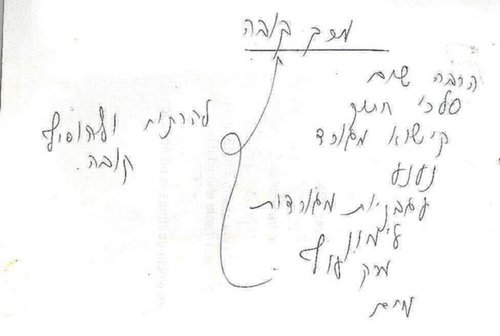 מרק קובה
הרבה שום
סלרי חתוך
קישוא מגורד
נענע
עגבניות מגורדות
לימון
מרק עוף
מים
להרתיח ולהוסיף
קובה